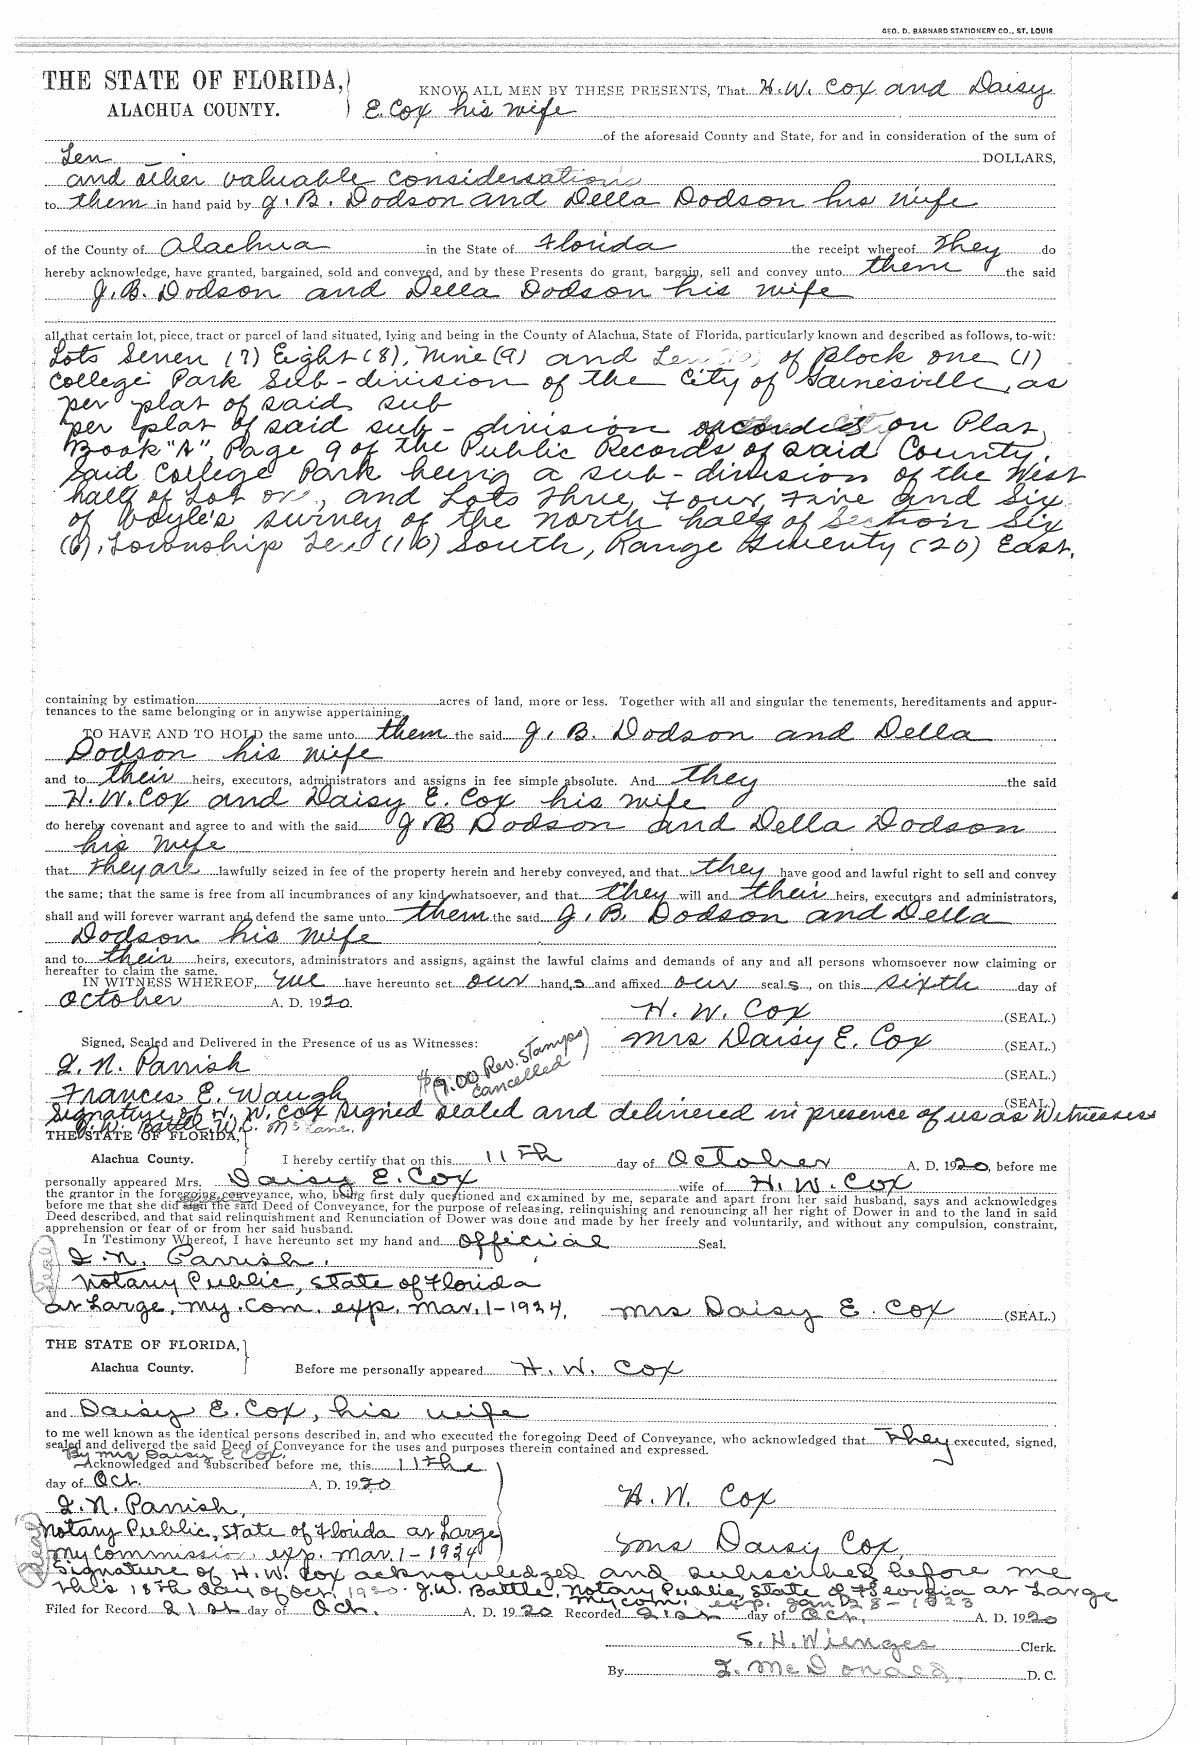 GEO. D. BARNARD STATIONERY CO., ST. LOUIS
THE STATE OF FLORIDA, KNOW ALL MEN BY THESE PRESENTS, That H. W. Cox and Daisy
ALACHUA COUNTY. E. Cox his wife
of the aforesaid County and State, for and in consideration of the sum of
Ten DOLLARS,
and other valuable considerations
to them in hand paid by J. B. Dodson and Della Dodson his wife
of the County of Alachua in the State of Florida the receipt whereof they do
hereby acknowledge, have granted, bargained, sold and conveyed, and by these Presents do grant, bargain, sell and convey unto them the said
J. B. Dodson and Della Dodson his wife
all that certain lot, piece, tract or parcel of land situated, lying and being in the County of Alachua, State of Florida, particularly known and described as follows, to-wit:
Lots Seven (7) Eight (8), Nine (9) and Ten (10) of Block one (1)
College Park Sub-division of the City of Gainesville, as
per plat of said sub
per plat of said sub-division recorded on Plat
Book "A", Page 9 of the Public Records of said County.
Said College Park being a sub-division of the West
half of Lot one, and Lots Three, Four, Five and Six
of Doyle's survey of the North half of Section Six
(6), Township Ten (10) South, Range Twenty (20) East.
containing by estimation acres of land, more or less. Together with all and singular the tenements, hereditaments and appur-
tenances to the same belonging or in anywise appertaining.
TO HAVE AND TO HOLD the same unto them the said J. B. Dodson and Della
Dodson his wife
and to their heirs, executors, administrators and assigns in fee simple absolute. And they the said
H. W. Cox and Daisy E. Cox his wife
do hereby covenant and agree to and with the said J B Dodson and Della Dodson
his wife
that they are lawfully seized in fee of the property herein and hereby conveyed, and that they have good and lawful right to sell and convey
the same; that the same is free from all incumbrances of any kind whatsoever, and that they will and their heirs, executors and administrators,
shall and will forever warrant and defend the same unto them the said J. B. Dodson and Della
Dodson his wife
and to their heirs, executors, administrators and assigns, against the lawful claims and demands of any and all persons whomsoever now claiming or
hereafter to claim the same.
IN WITNESS WHEREOF, we have hereunto set our hand,s and affixed our seal s, on this sixth day of
October A. D. 1920
H. W. Cox (SEAL.)
Signed, Sealed and Delivered in the Presence of us as Witnesses: Mrs Daisy E. Cox (SEAL.)
J. N. Parrish (SEAL.)
$9.00 Rev. Stamps
cancelled
Frances E. Waugh (SEAL.)
Signature of H. W. Cox signed sealed and delivered in presence of us as Witnesses
J. W. Battle W. C. McLane.
THE STATE OF FLORIDA,
Alachua County. I hereby certify that on this 11th day of October A. D. 1920, before me
personally appeared Mrs. Daisy E. Cox wife of H. W. Cox
the grantor in the foregoing conveyance, who, being first duly questioned and examined by me, separate and apart from her said husband, says and acknowledges
before me that she did sign the said Deed of Conveyance, for the purpose of releasing, relinquishing and renouncing all her right of Dower in and to the land in said
Deed described, and that said relinquishment and Renunciation of Dower was done and made by her freely and voluntarily, and without any compulsion, constraint,
apprehension or fear of or from her said husband.
In Testimony Whereof, I have hereunto set my hand and official Seal.
(Seal) J. N. Parrish.
Notary Public, State of Florida
at Large, my. com. exp. Mar. 1-1924. Mrs Daisy E. Cox (SEAL.)
THE STATE OF FLORIDA,
Alachua County. Before me personally appeared H. W. Cox
and Daisy E. Cox, his wife
to me well known as the identical persons described in, and who executed the foregoing Deed of Conveyance, who acknowledged that they executed, signed,
sealed and delivered the said Deed of Conveyance for the uses and purposes therein contained and expressed.
By Mrs Daisy E Cox.
Acknowledged and subscribed before me, this 11the
day of Oct. A. D. 1920
J. N. Parrish, H. W. Cox
(Seal) Notary Public, State of Florida at Large
My commission exp. Mar. 1-1924 Mrs Daisy Cox
Signature of H. W. Cox acknowledged and subscribed before me
this 18th day of Oct. 1920. J. W. Battle. Notary Public, State of Georgia at Large
my com. exp. Jan 28-1923
Filed for Record 21st day of Oct. A. D. 1920 Recorded 21st day of Oct. A. D. 1920
S. H. Wienges Clerk.
By J. McDonald, D. C.